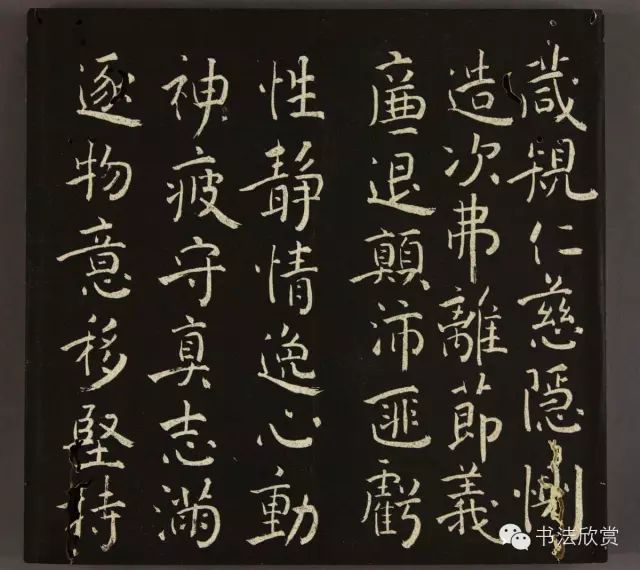 箴規仁慈隱惻
造次弗離節義
廉退顛沛匪虧
性静情逸心動
神疲守真志滿
逐物意移堅持
书法欣赏